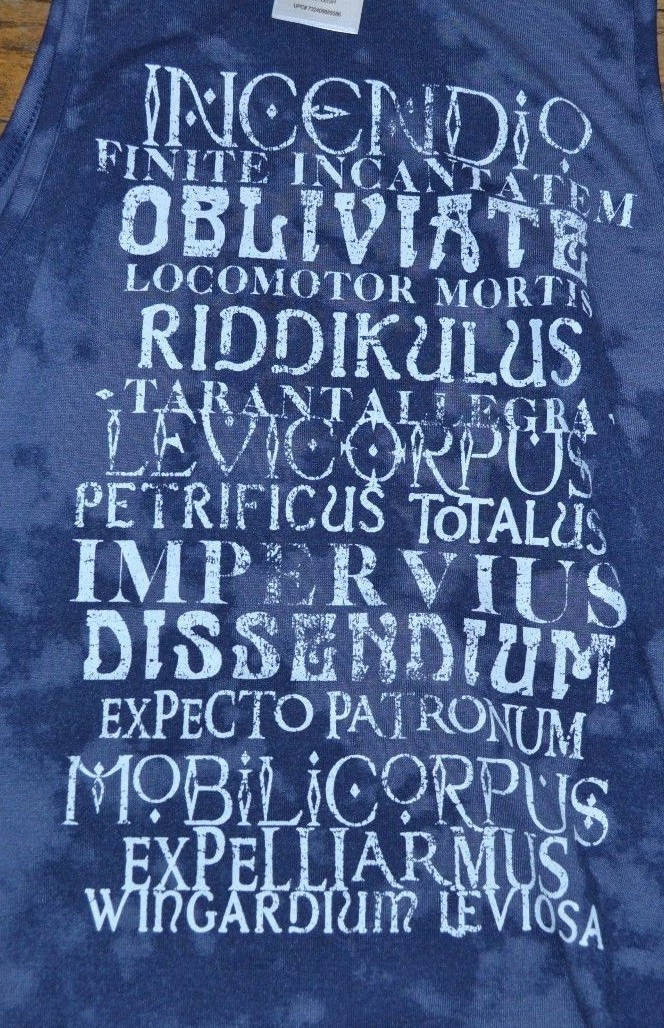 INCENDIO
FINITE INCANTATEM
OBLIVIATE
LOCOMOTOR MORTIS
RIDDIKULUS
TARANTALLEGRA
LEVICORPUS
PETRIFICUS TOTALUS
IMPERVIUS
DISSENDIUM
EXPECTO PATRONUM
MOBILICORPUS
EXPELLIARMUS
WINGARDIUM LEVIOSA